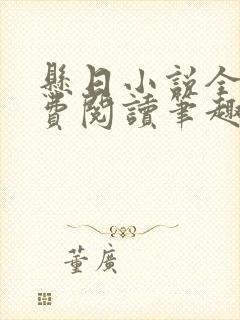 懸日小說全
費閱讀筆趣
董廣